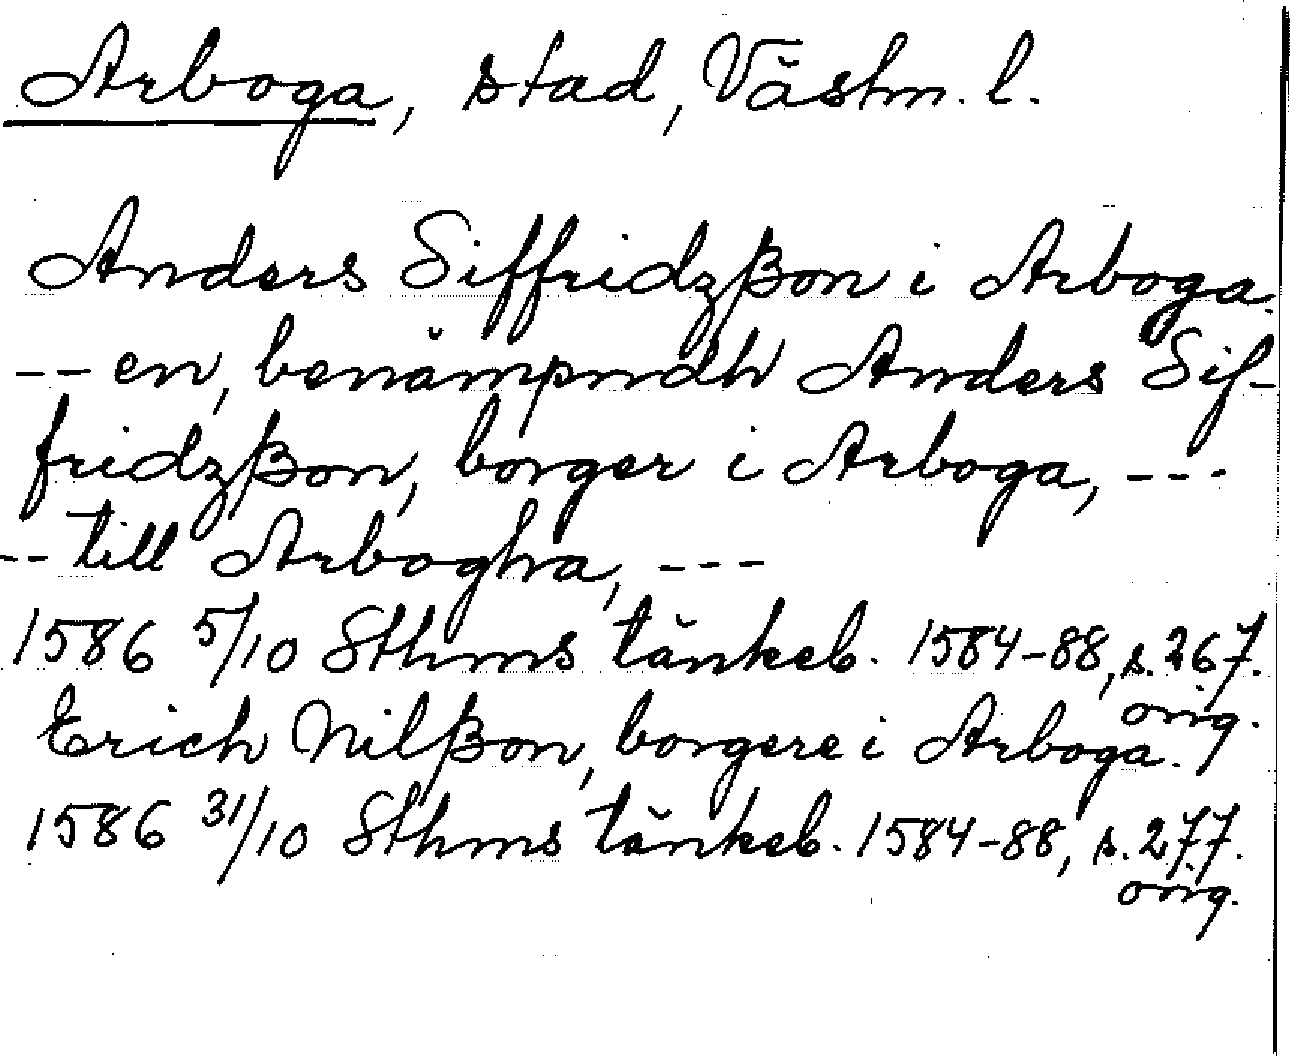 Arboga, stad, Västm. l.
Anders Siffridzßon i Arboga.
-- en, benämpndh Anders Sif-
fridzßon, borger i Arboga, ---
-- till Arbogha, ---
1586 5/10 Sthms tänkeb. 1584-88, s. 267.
orig.
Erich Nilßon, borgere i Arboga.
1586 31/10 Sthms tänkeb. 1584-88, s. 277.
orig.